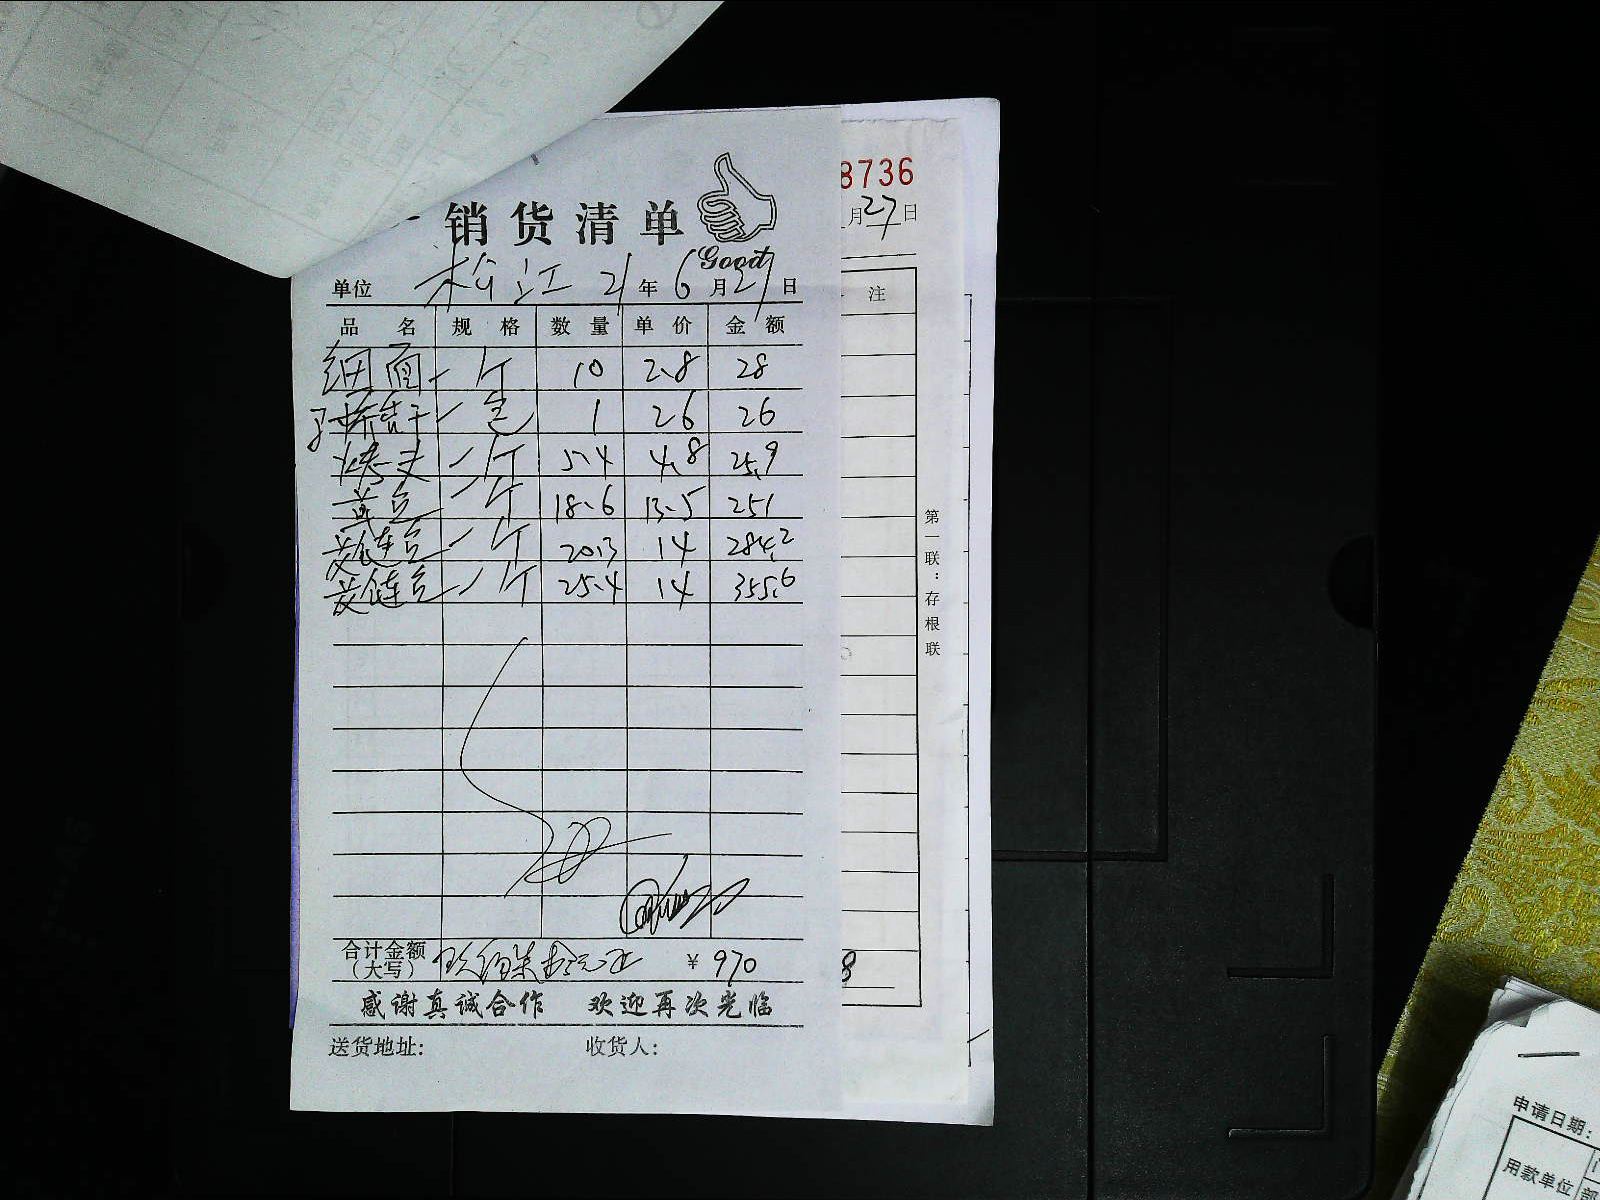 销货清单
Good
单位 松江 21年6月27日
品名 规格 数量 单价 金额
细面 一 个 10 2.8 28
一 包 1 26 26
烤夫 一 个 5.4 4.8 25.9
一 个 18.6 13.5 251
一 个 20.3 14 284.2
一 个 25.4 14 355.6
合计金额（大写） 玖佰柒拾元正 ¥ 970
感谢真诚合作 欢迎再次光临
送货地址: 收货人:
8736
月27日
注
第一联:存根联
8
申请日期:
用款单位